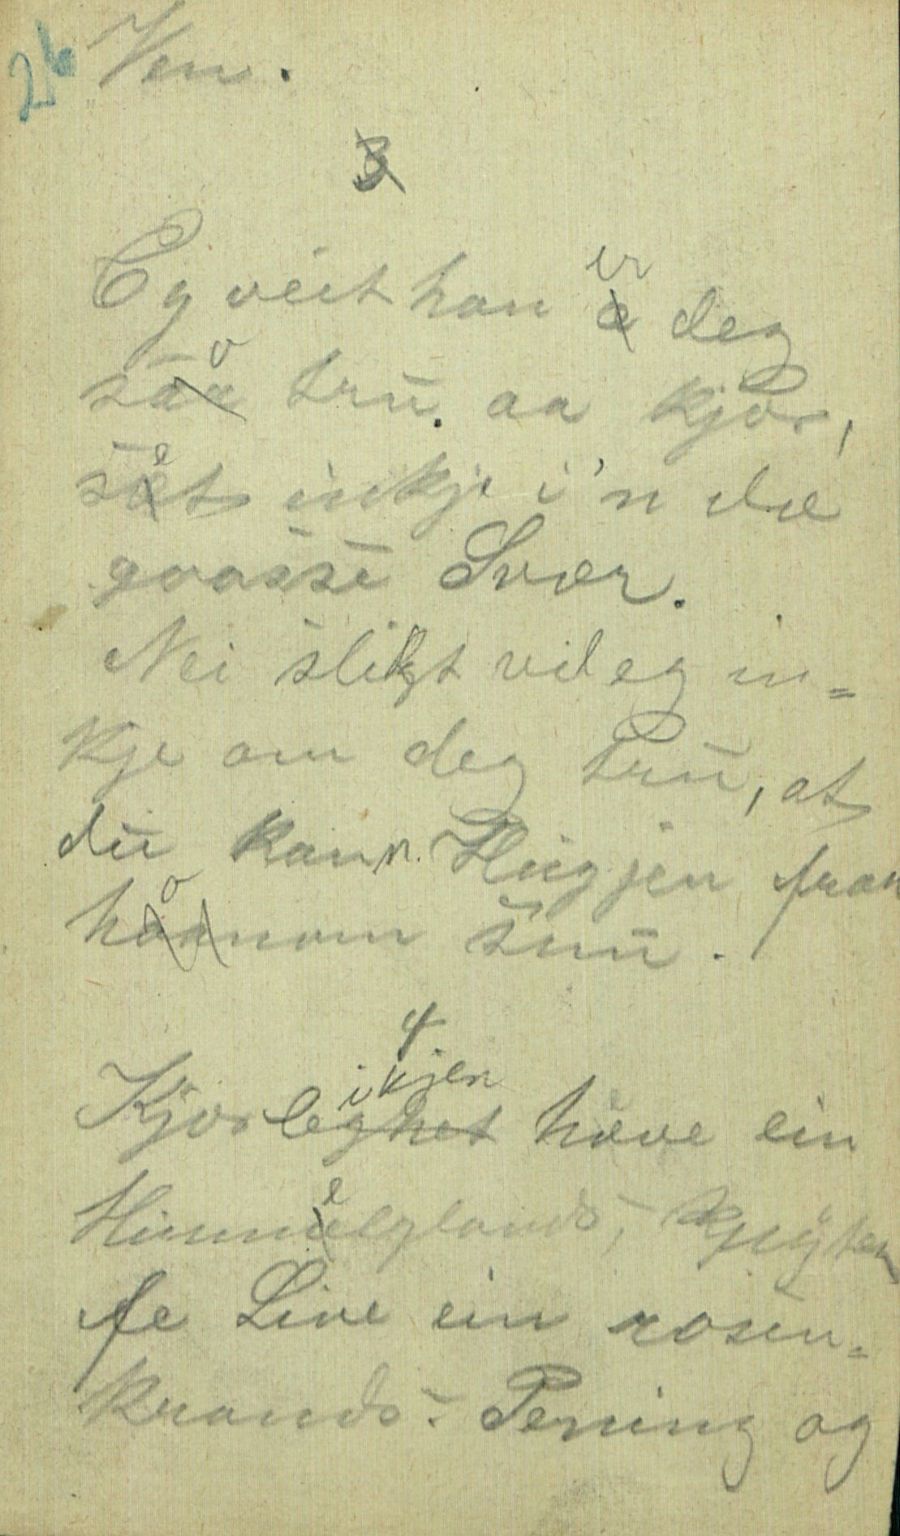 26
Ven.
3
Eg veit han er deg
så trū. aa kjær,
set inkje i'n dæ
graasse Svær.
Nei slikt vil eg in=
kje om deg trū, at
dū kann Hūgjen fraa
honom snū.
4
Kjærleikjen hæve ein
Himmelglands,
fe Live ein rosen=
krands. Pening og